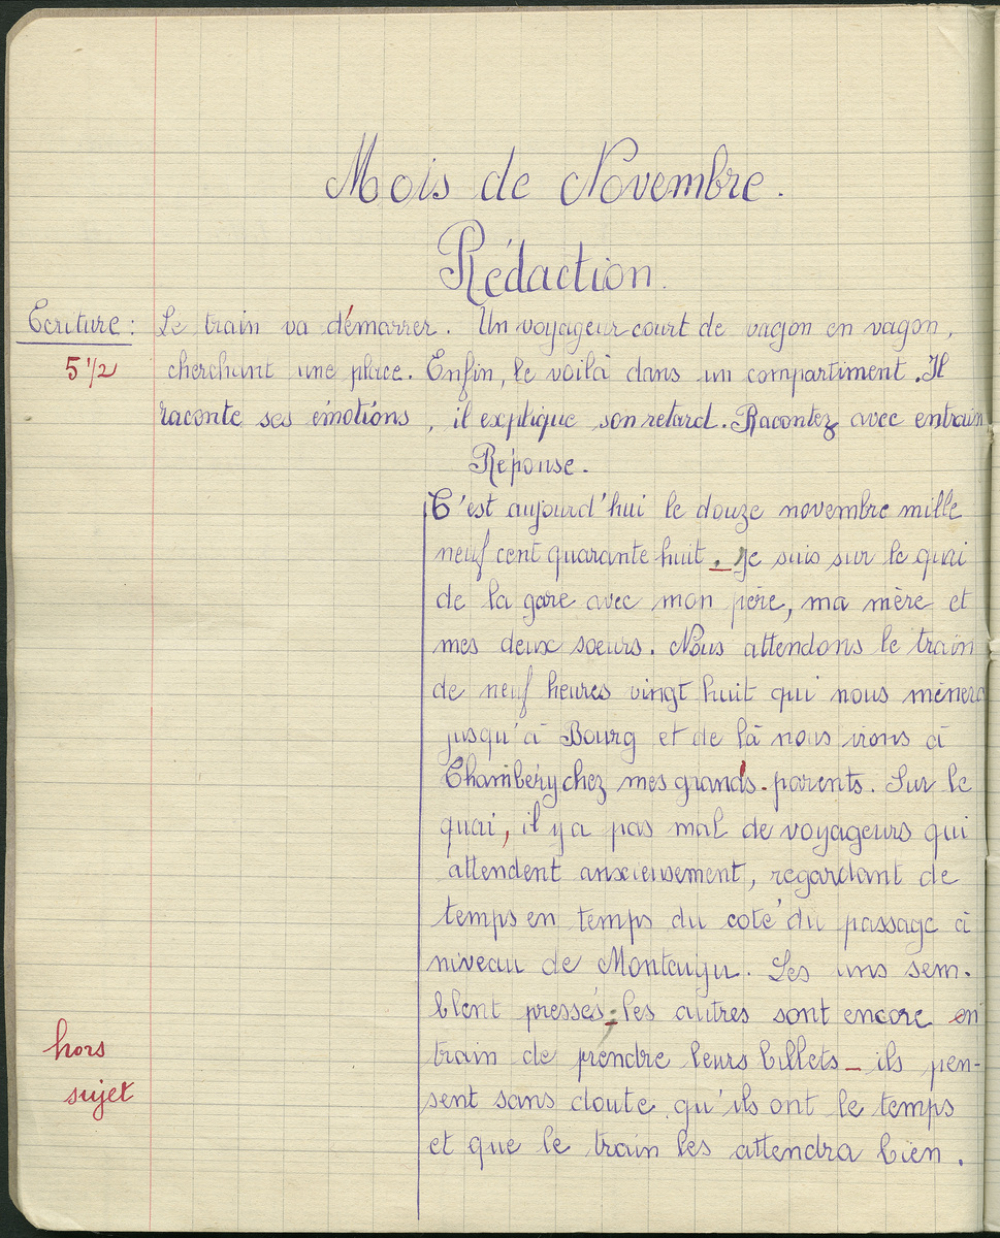 Mois de Novembre.
Rédaction.
Ecriture : Le train va démarrer. Un voyageur court de vagon en vagon,
5 1/2 cherchant une place. Enfin, le voilà dans un compartiment. Il
raconte ses émotions, il explique son retard. Racontez avec entrain
Réponse.
C'est aujourd'hui le douze novembre mille
neuf cent quarante huit. Je suis sur le quai
de la gare avec mon père, ma mère et
mes deux soeurs. Nous attendons le train
de neuf heures vingt huit qui nous mènera
jusqu'à Bourg et de là nous irons à
Chambéry chez mes grands-parents. Sur le
quai, il y a pas mal de voyageurs qui
attendent anxieusement, regardant de
temps en temps du coté du passage à
niveau de Montaugu. Les uns sem-
blent pressés ; les autres sont encore en
train de prendre leurs billets _ ils pen-
hors
sujet
sent sans doute qu'ils ont le temps
et que le train les attendra bien.